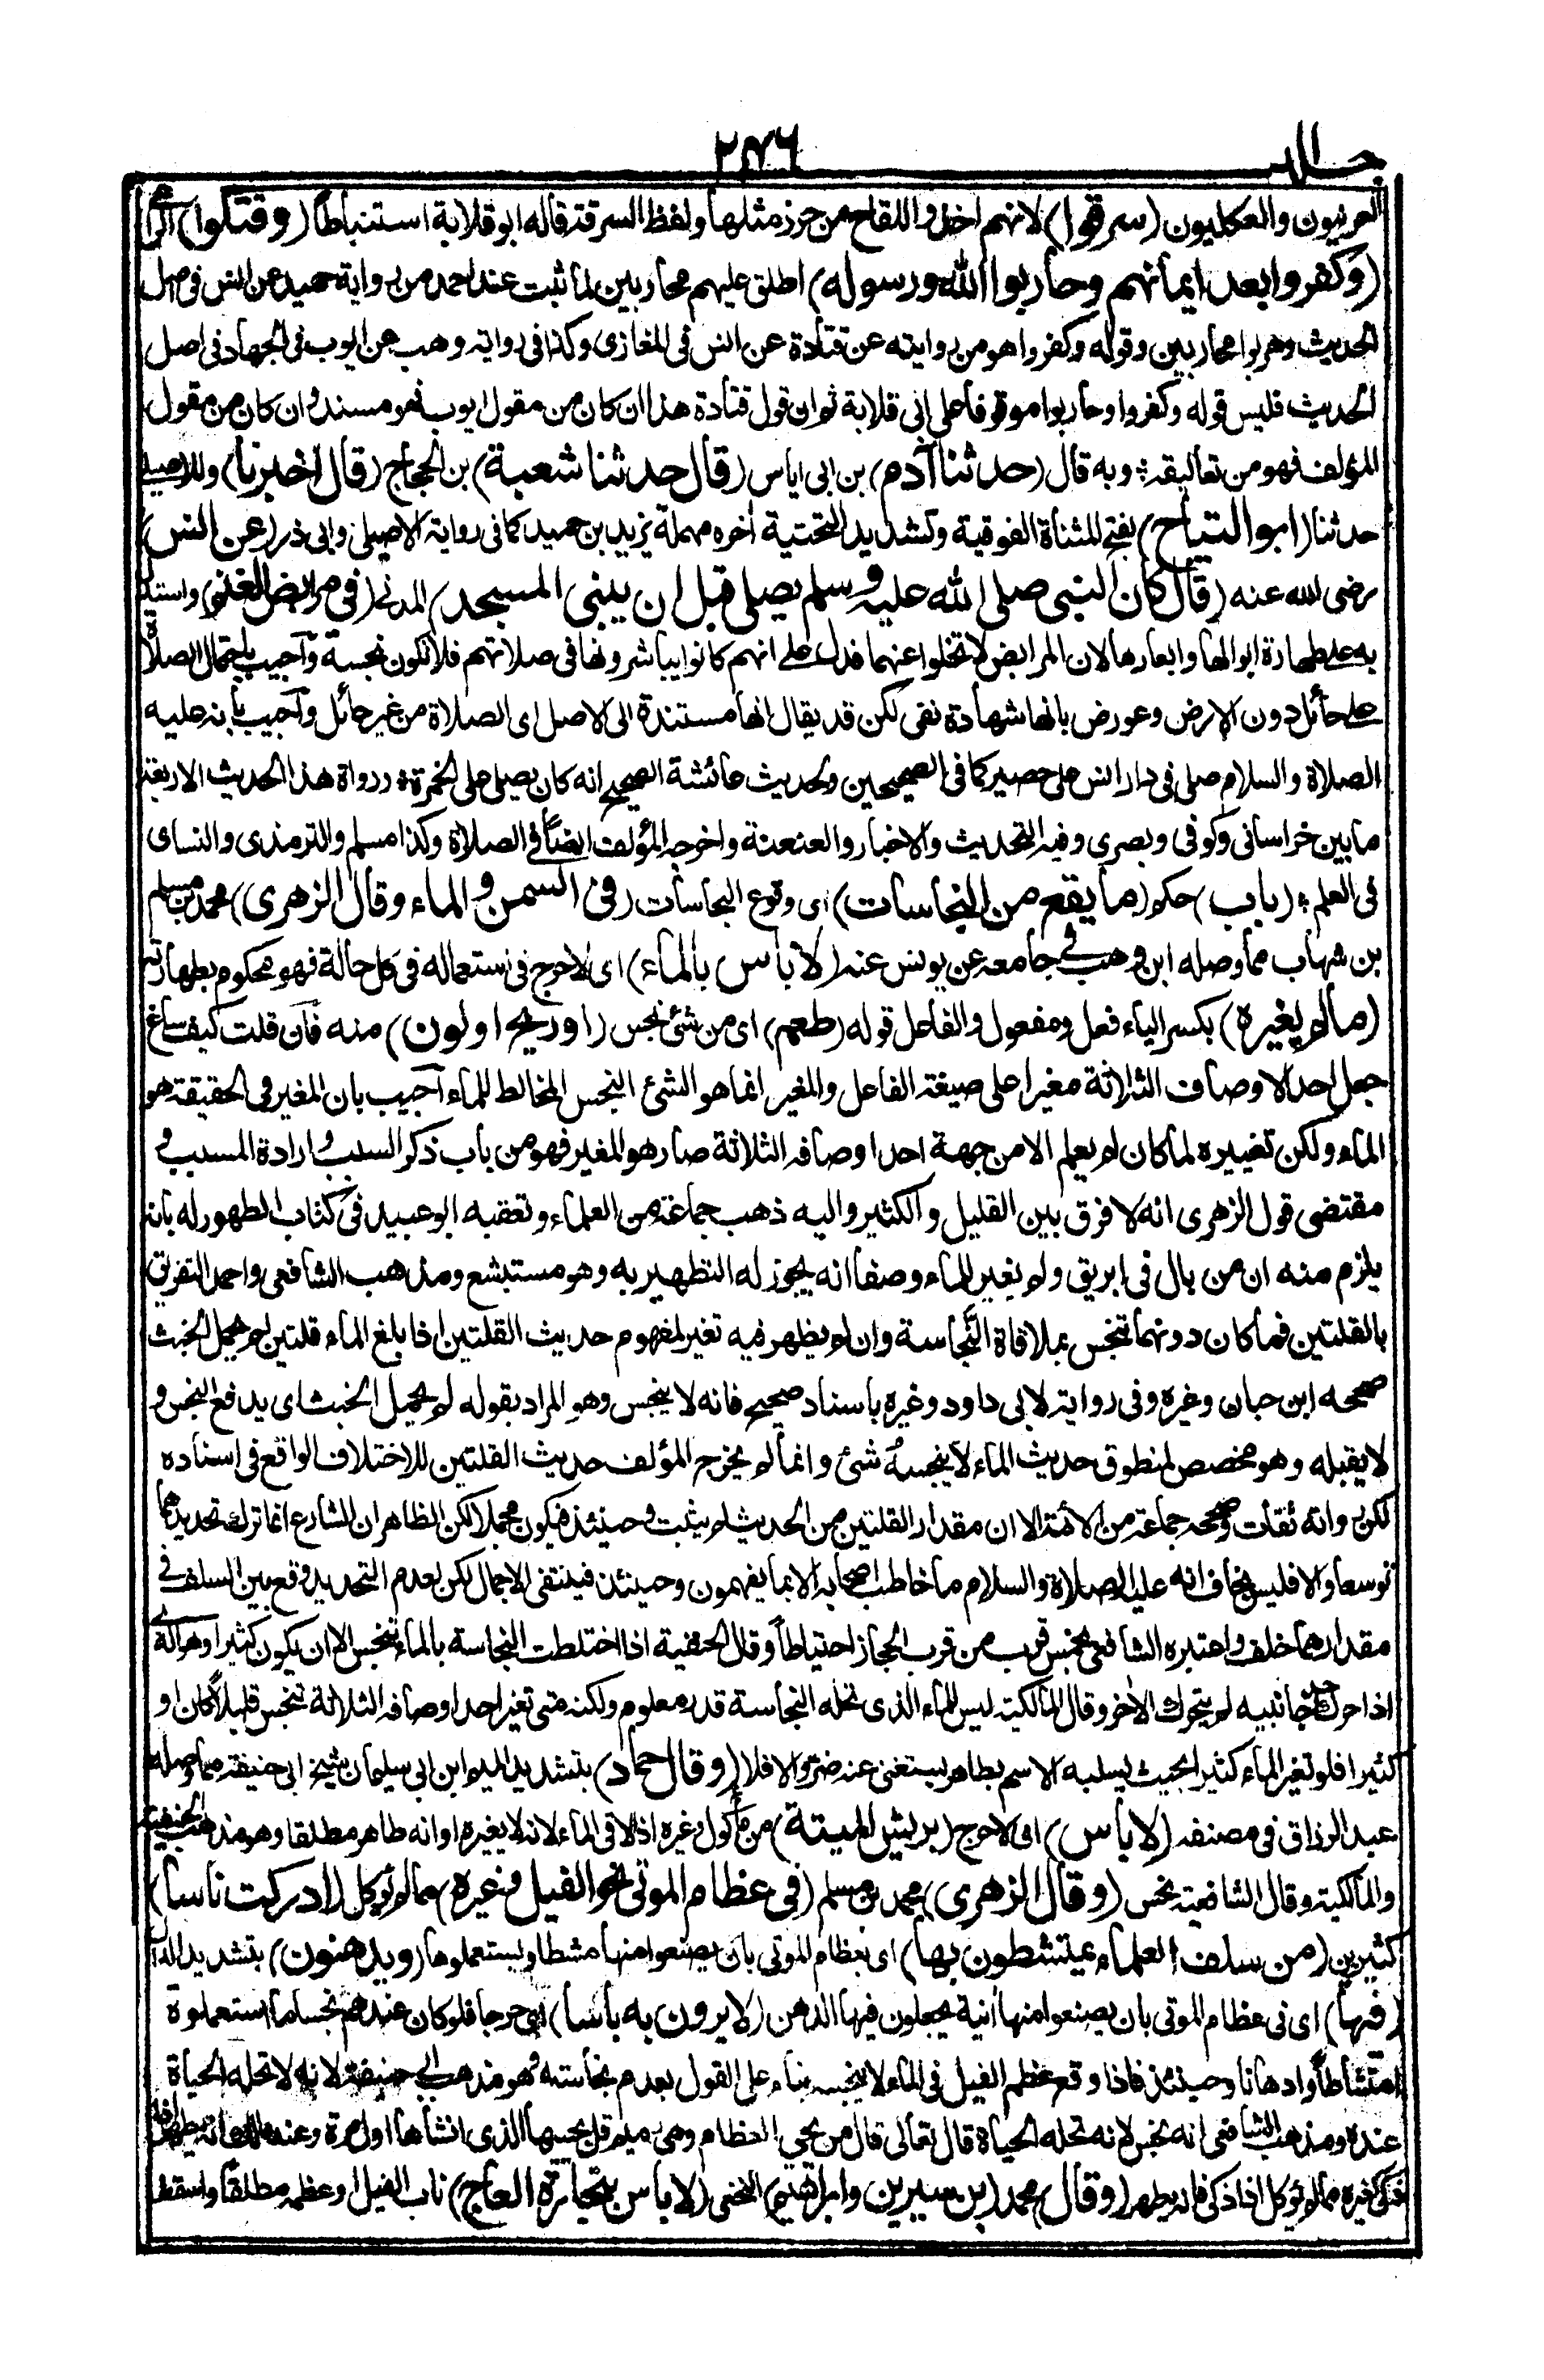 ٢٤٦
العرنيون والعكليون (سرقوا) لانهم اخذوا اللقاح من حرز مثلها ولفظ السرقة قاله ابو قلابة استنباطا (وقتلوا) الراعي
(وكفروا بعد ايمانهم وحاربوا الله ورسوله) اطلق عليهم محاربين لما ثبت عند احمد من رواية حميد عن انس في اصل
الحديث وهربوا محاربين وقوله وكفروا هو من روايته عن قتادة عن انس في المغازي وكذا في رواية وهب عن ايوب في الجهاد في اصل
الحديث فليس قوله وكفروا وحاربوا موقوفا على ابي قلابة ثم ان قول قتادة هذا ان كان من مقول ايوب فهو مسند وان كان من مقول
المؤلف فهو من تعاليقه * وبه قال (حدثنا آدم) بن ابي اياس (قال حدثنا شعبة) بن الحجاج (قال اخبرنا) وللاصيلي
حدثنا (ابو التياح) بفتح المثناة الفوقية وتشديد التحتية اخره مهملة يزيد بن حميد كما في رواية الاصيلي وابي ذر (عن انس)
رضى الله عنه (قال كان النبي صلى الله عليه وسلم يصلي قبل ان يبنى المسجد) المدني (في مرابض الغنم) واستدل
به على طهارة ابوالها وابعارها لان المرابض لا تخلو عنهما فدل على انهم كانوا يباشرونها في صلاتهم فلا تكون نجسة وآجيب باحتمال الصلاة
على حائل دون الارض وعورض بانها شهادة نفي لكن قد يقال انها مستندة الى الاصل اى الصلاة من غير حائل وآجيب بانه عليه
الصلاة والسلام صلى في دار انس على حصير كما في الصحيحين ولحديث عائشة الصحيح انه كان يصلي على الخمرة * ورواة هذا الحديث الاربعة
ما بين خراساني وكوفي وبصري وفيه التحديث والاخبار والعنعنة واخرجه المؤلف ايضا في الصلاة وكذا مسلم والترمذي والنساى
في العلم * (باب) حكم (ما يقع من النجاسات) اى وقوع النجاسات (في السمن والماء وقال الزهري) محمد بن مسلم
بن شهاب مما وصله ابن وهب في جامعه عن يونس عنه (لا باس بالماء) اى لا حرج في استعماله في كل حالة فهو محكوم بطهارته
(ما لم يغيره) بكسر الياء فعل ومفعول والفاعل قوله (طعم) اى من شئ نجس (او ريح او لون) منه فآن قلت كيف ساغ
جعل احد الاوصاف الثلاثة مغيرا على صيغة الفاعل والمغير انما هو الشئ النجس المخالط للماء آجيب بان المغير في الحقيقة هو
الماء ولكن تغييره لما كان لم يعلم الا من جهة احد اوصافه الثلاثة صار هو المغير فهو من باب ذكر السبب وارادة المسبب و
مقتضى قول الزهري انه لا فرق بين القليل والكثير واليه ذهب جماعة من العلماء وتعقبه ابو عبيد في كتاب الطهور له بانه
يلزم منه ان من بال في ابريق ولم يغير للماء وصفا انه يجوز له التطهير به وهو مستبشع ومذهب الشافعي واحمد التفريق
بالقلتين فما كان دونهما تنجس بملاقاة النجاسة وان لم يظهر فيه تغير لمفهوم حديث القلتين اذا بلغ الماء قلتين لم يحمل الخبث
صححه ابن حبان وغيره وفي رواية لابي داود وغيره باسناد صحيح فانه لا ينجس وهو المراد بقوله لم يحمل الخبث اى يدفع النجس و
لا يقبله وهو مخصص لمنطوق حديث الماء لا ينجسه شئ وانما لم يخرج المؤلف حديث القلتين للاختلاف الواقع في اسناده
لكن رواته ثقات وصححه جماعة من الائمة الا ان مقدار القلتين من الحديث لم يثبت وحينئذ فيكون مجملا لكن الظاهر ان الشارع انما ترك تحديدهما
توسعا والا فليس بخاف انه عليه الصلاة والسلام ما خاطب اصحابه الا بما يفهمون وحينئذ فينتفي الاجمال لكن لعدم التحديد وقع بين السلف في
مقدارهما خلف واعتبره الشافعي بخمس قرب من قرب الحجاز احتياطا وقال الحنفية اذا اختلطت النجاسة بالماء تنجس الا ان يكون كثيرا وهو الذى
اذا حرك احد جانبيه لم يتحرك الاخر وقال المالكية ليس للماء الذى تحله النجاسة قدر معلوم ولكنه متى تغير احد اوصافه الثلاثة تنجس قليلا كان او
كثيرا فلو تغير الماء كثيرا بحيث يسلبه الاسم بطاهر يستغنى عنه ضر والا فلا (وقال حماد) بتشديد الميم ابن ابي سليمان شيخ ابي حنيفة مما وصله
عبد الرزاق في مصنفه (لا باس) اى لا حرج (بريش الميتة) من مأكول وغيره اذا لاقى الماء لانه لا يغيره او انه طاهر مطلقا وهو مذهب الحنفية
والمالكية وقال الشافعية نجس (وقال الزهري) محمد بن مسلم (في عظام الموتى نحو الفيل وغيره) مما لم يؤكل (ادركت ناسا)
كثيرين (من سلف العلماء يمتشطون بها) اى بعظام الموتى بان يصنعوا منها مشطا ويستعملوها (ويدهنون) بتشديد الدال
(فيها) اى في عظام الموتى بان يصنعوا منها آنية يجعلون فيها الدهن (لا يرون به باسا) اى حرجا فلو كان عندهم نجسا ما استعملوه
امتشاطا وادهانا وحينئذ فاذا وقع عظم الفيل في الماء لا ينجسه بناء على القول بعدم نجاسته وهو مذهب ابي حنيفة لانه لا تحله الحياة
عنده ومذهب الشافعي انه نجس لانه تحله الحياة قال تعالى قال من يحي العظام وهي رميم قل يحييها الذى انشأها اول مرة وعند مالك انه يطهر اذا
ذكى كغيره مما لم يؤكل اذا ذكى فانه يطهر (وقال) محمد (بن سيرين وابراهيم) النخعي (لا باس بتجارة العاج) ناب الفيل او عظمه مطلقا واسقط